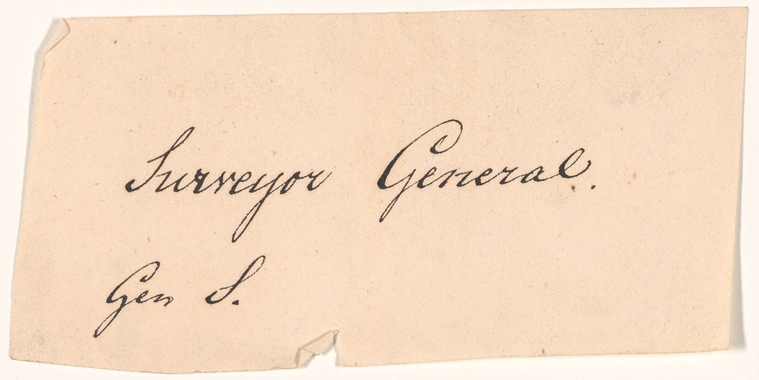 Surveyor General.
Gen S.